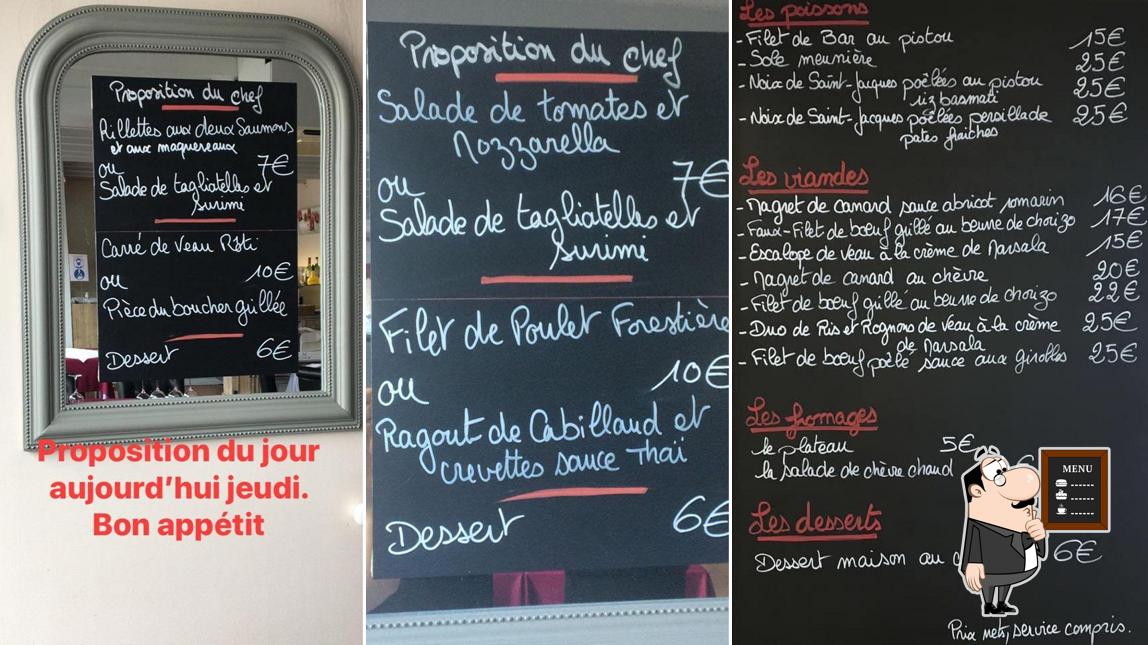 Proposition du chef
Rillettes aux deux Saumons
et aux maquereaux
ou 7€
Salade de tagliatelles et
surimi
Carré de veau Rôti
ou 10€
Pièce du boucher grillée
Dessert 6€
Proposition du jour
aujourd’hui jeudi.
Bon appétit
Proposition du chef
Salade de tomates et
Mozzarella
ou 7€
Salade de tagliatelles et
surimi
Filet de Poulet Forestière
ou 10€
Ragout de Cabillaud et
crevettes sauce Thaï
Dessert 6€
Les poissons
- Filet de Bar au pistou 15€
- Sole meunière 25€
- Noix de Saint-Jacques poêlées au pistou 25€
riz basmati
- Noix de Saint-Jacques poêlées persillade 25€
pates fraiches
Les viandes
- Magret de canard sauce abricot romarin 16€
- Faux-Filet de bœuf grillé au beurre de chorizo 17€
- Escalope de veau à la crème de Marsala 15€
- Magret de canard au chèvre 20€
- Filet de bœuf grillé au beurre de chorizo 22€
- Duo de Ris et Rognons de veau à la crème 25€
de Marsala
- Filet de bœuf poêlé sauce aux girolles 25€
Les fromages
le plateau 5€
la salade de chèvre chaud €
MENU
Les desserts
Dessert maison au 6€
Prix nets, service compris.